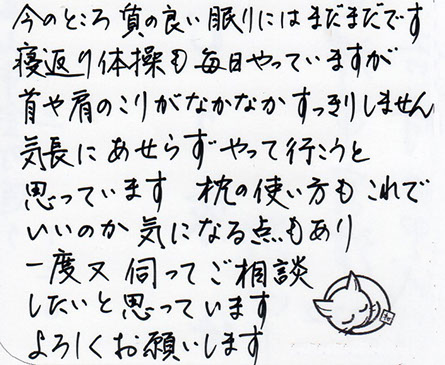 今のところ質の良い眠りにはまだまだです
寝返り体操も毎日やっていますが
首や肩のこりがなかなかすっきりしません
気長にあせらずやって行こうと
思っています 枕の使い方もこれで
いいのか気になる点もあり
一度又伺ってご相談
したいと思っています
よろしくお願いします